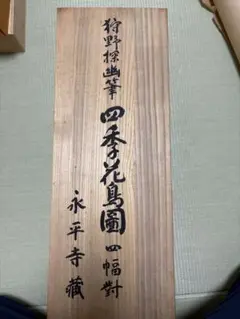 狩野探幽筆
四季花鳥圖 四幅對
永平寺藏